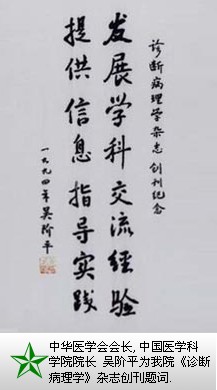 诊断病理学杂志 创刊纪念
发展学科交流经验
提供信息指导实践
一九九四年吴阶平
中华医学会会长,中国医学科
学院院长 吴阶平为我院《诊断
病理学》杂志创刊题词.